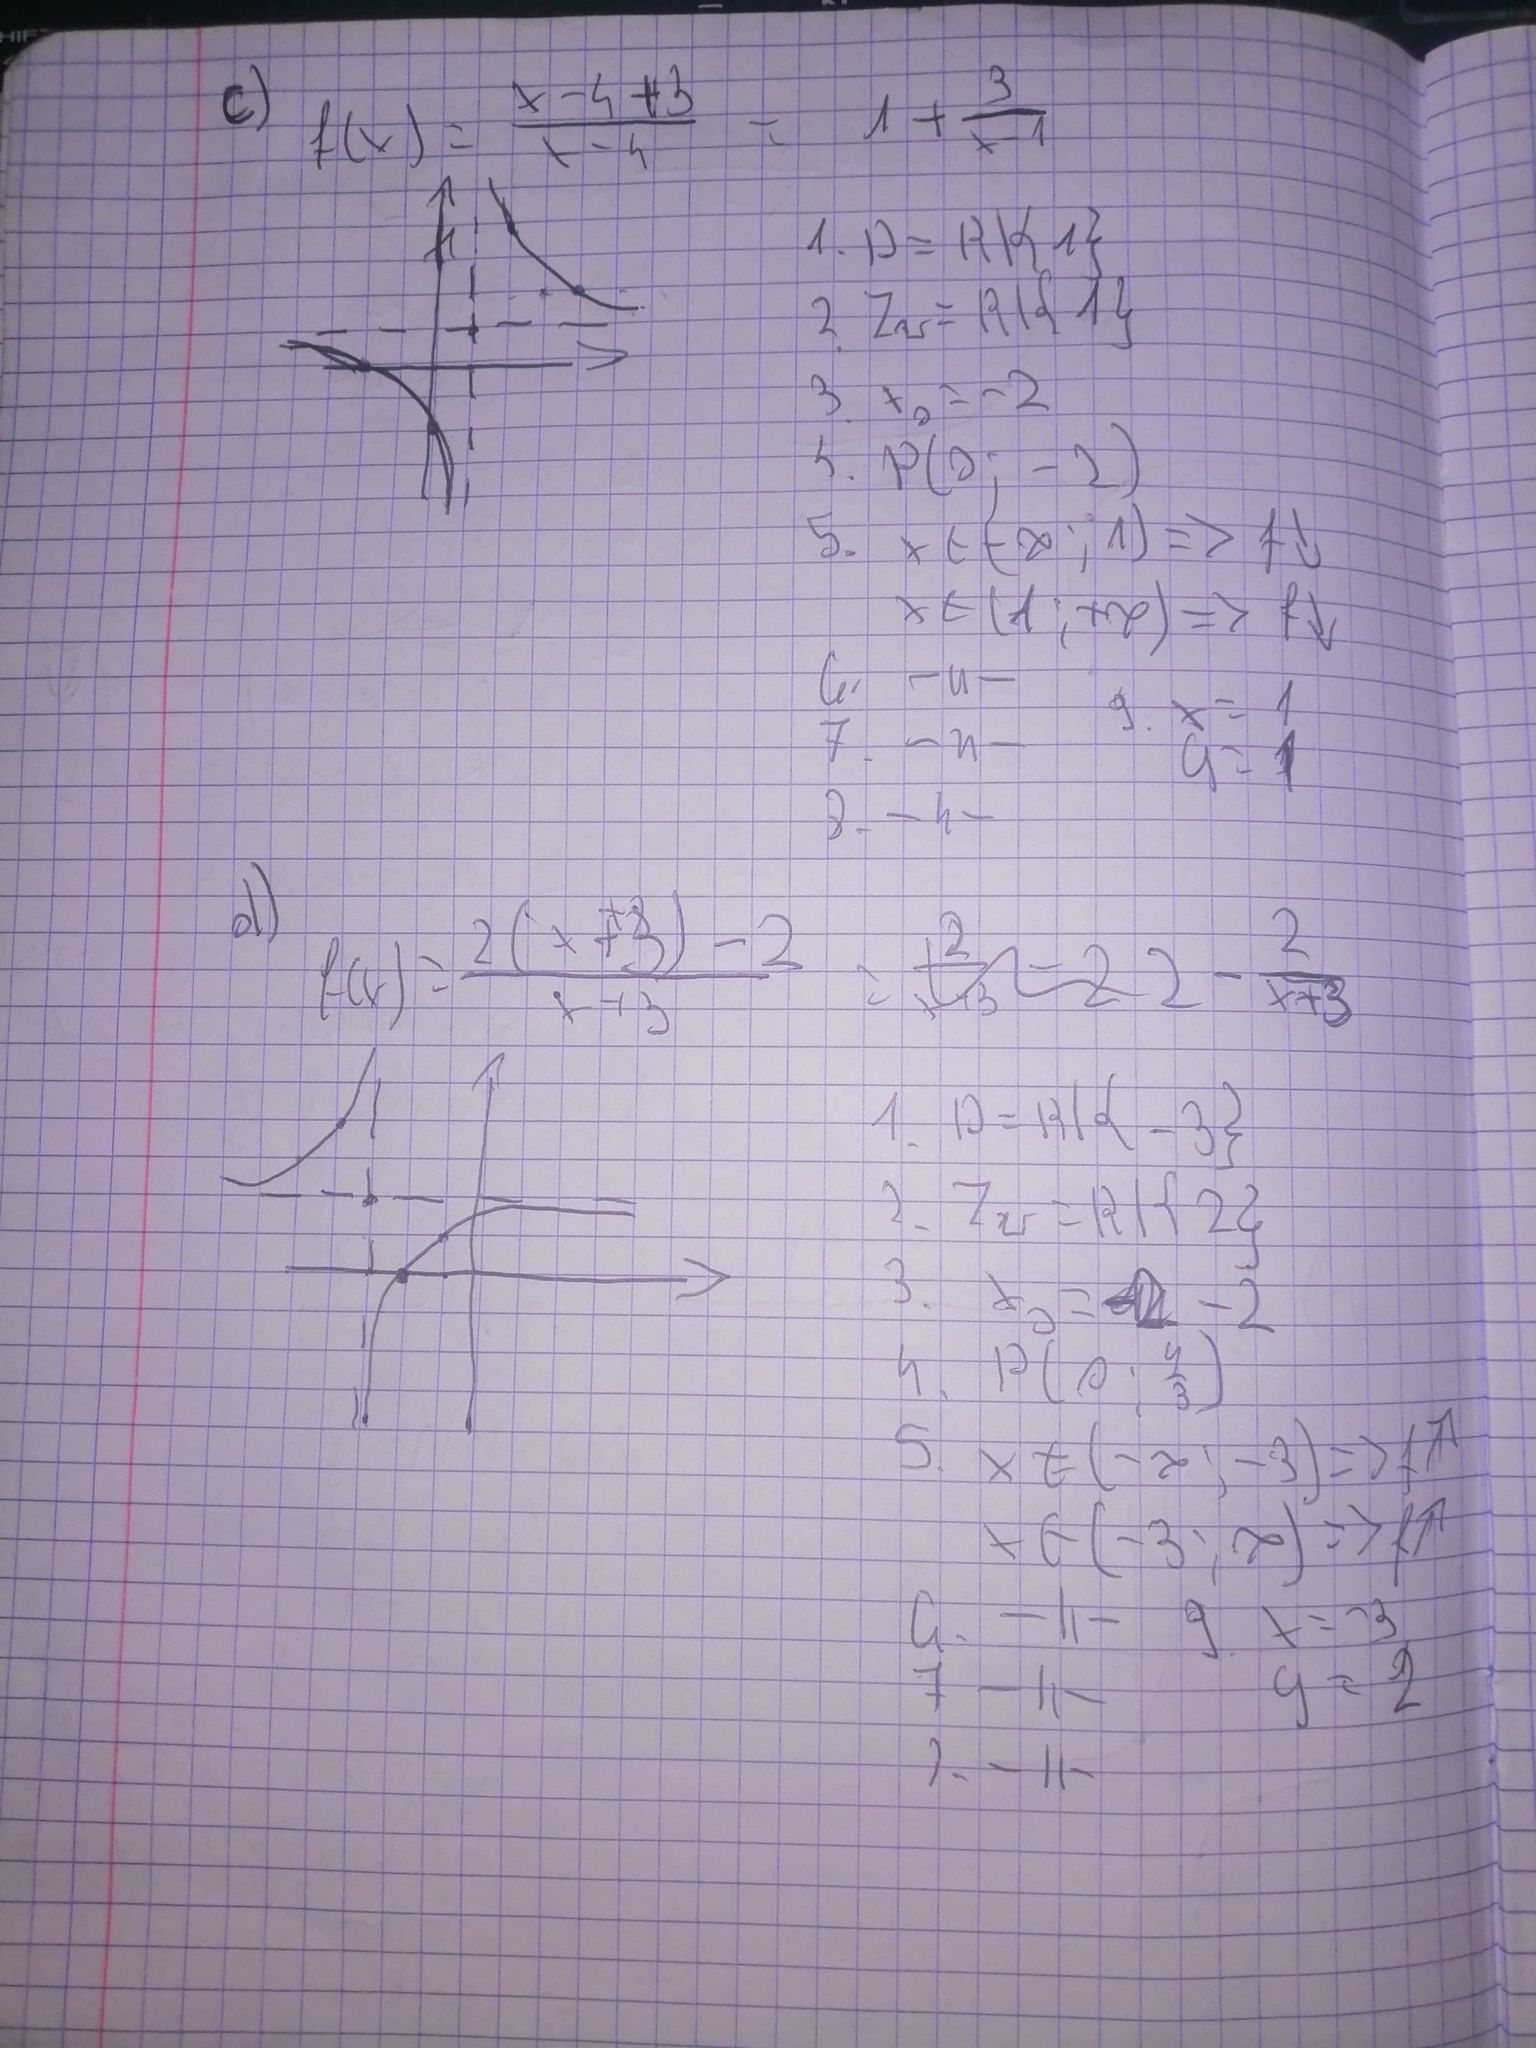 c) f(x) = \frac{x-4+3}{x-4} = 1 + \frac{3}{x-1}
1. D = R\{1}
2. Zw = R\{1}
3. x₀ = -2
4. P(0; -2)
5. x ∈ (-∞; 1) => f↓
x ∈ (1; +∞) => f↓
6. -||-
7. -||-
8. -||-
9. x = 1
y = 1
d) f(x) = \frac{2(x+3)-2}{x+3} = 2 - \frac{2}{x+3}
1. D = R\{-3}
2. Zw = R\{2}
3. x₀ = -2
4. P(0; \frac{4}{3})
5. x ∈ (-∞; -3) => f↑
x ∈ (-3; ∞) => f↑
6. -||-
7 -||-
8. -||-
9. x = -3
y = 2